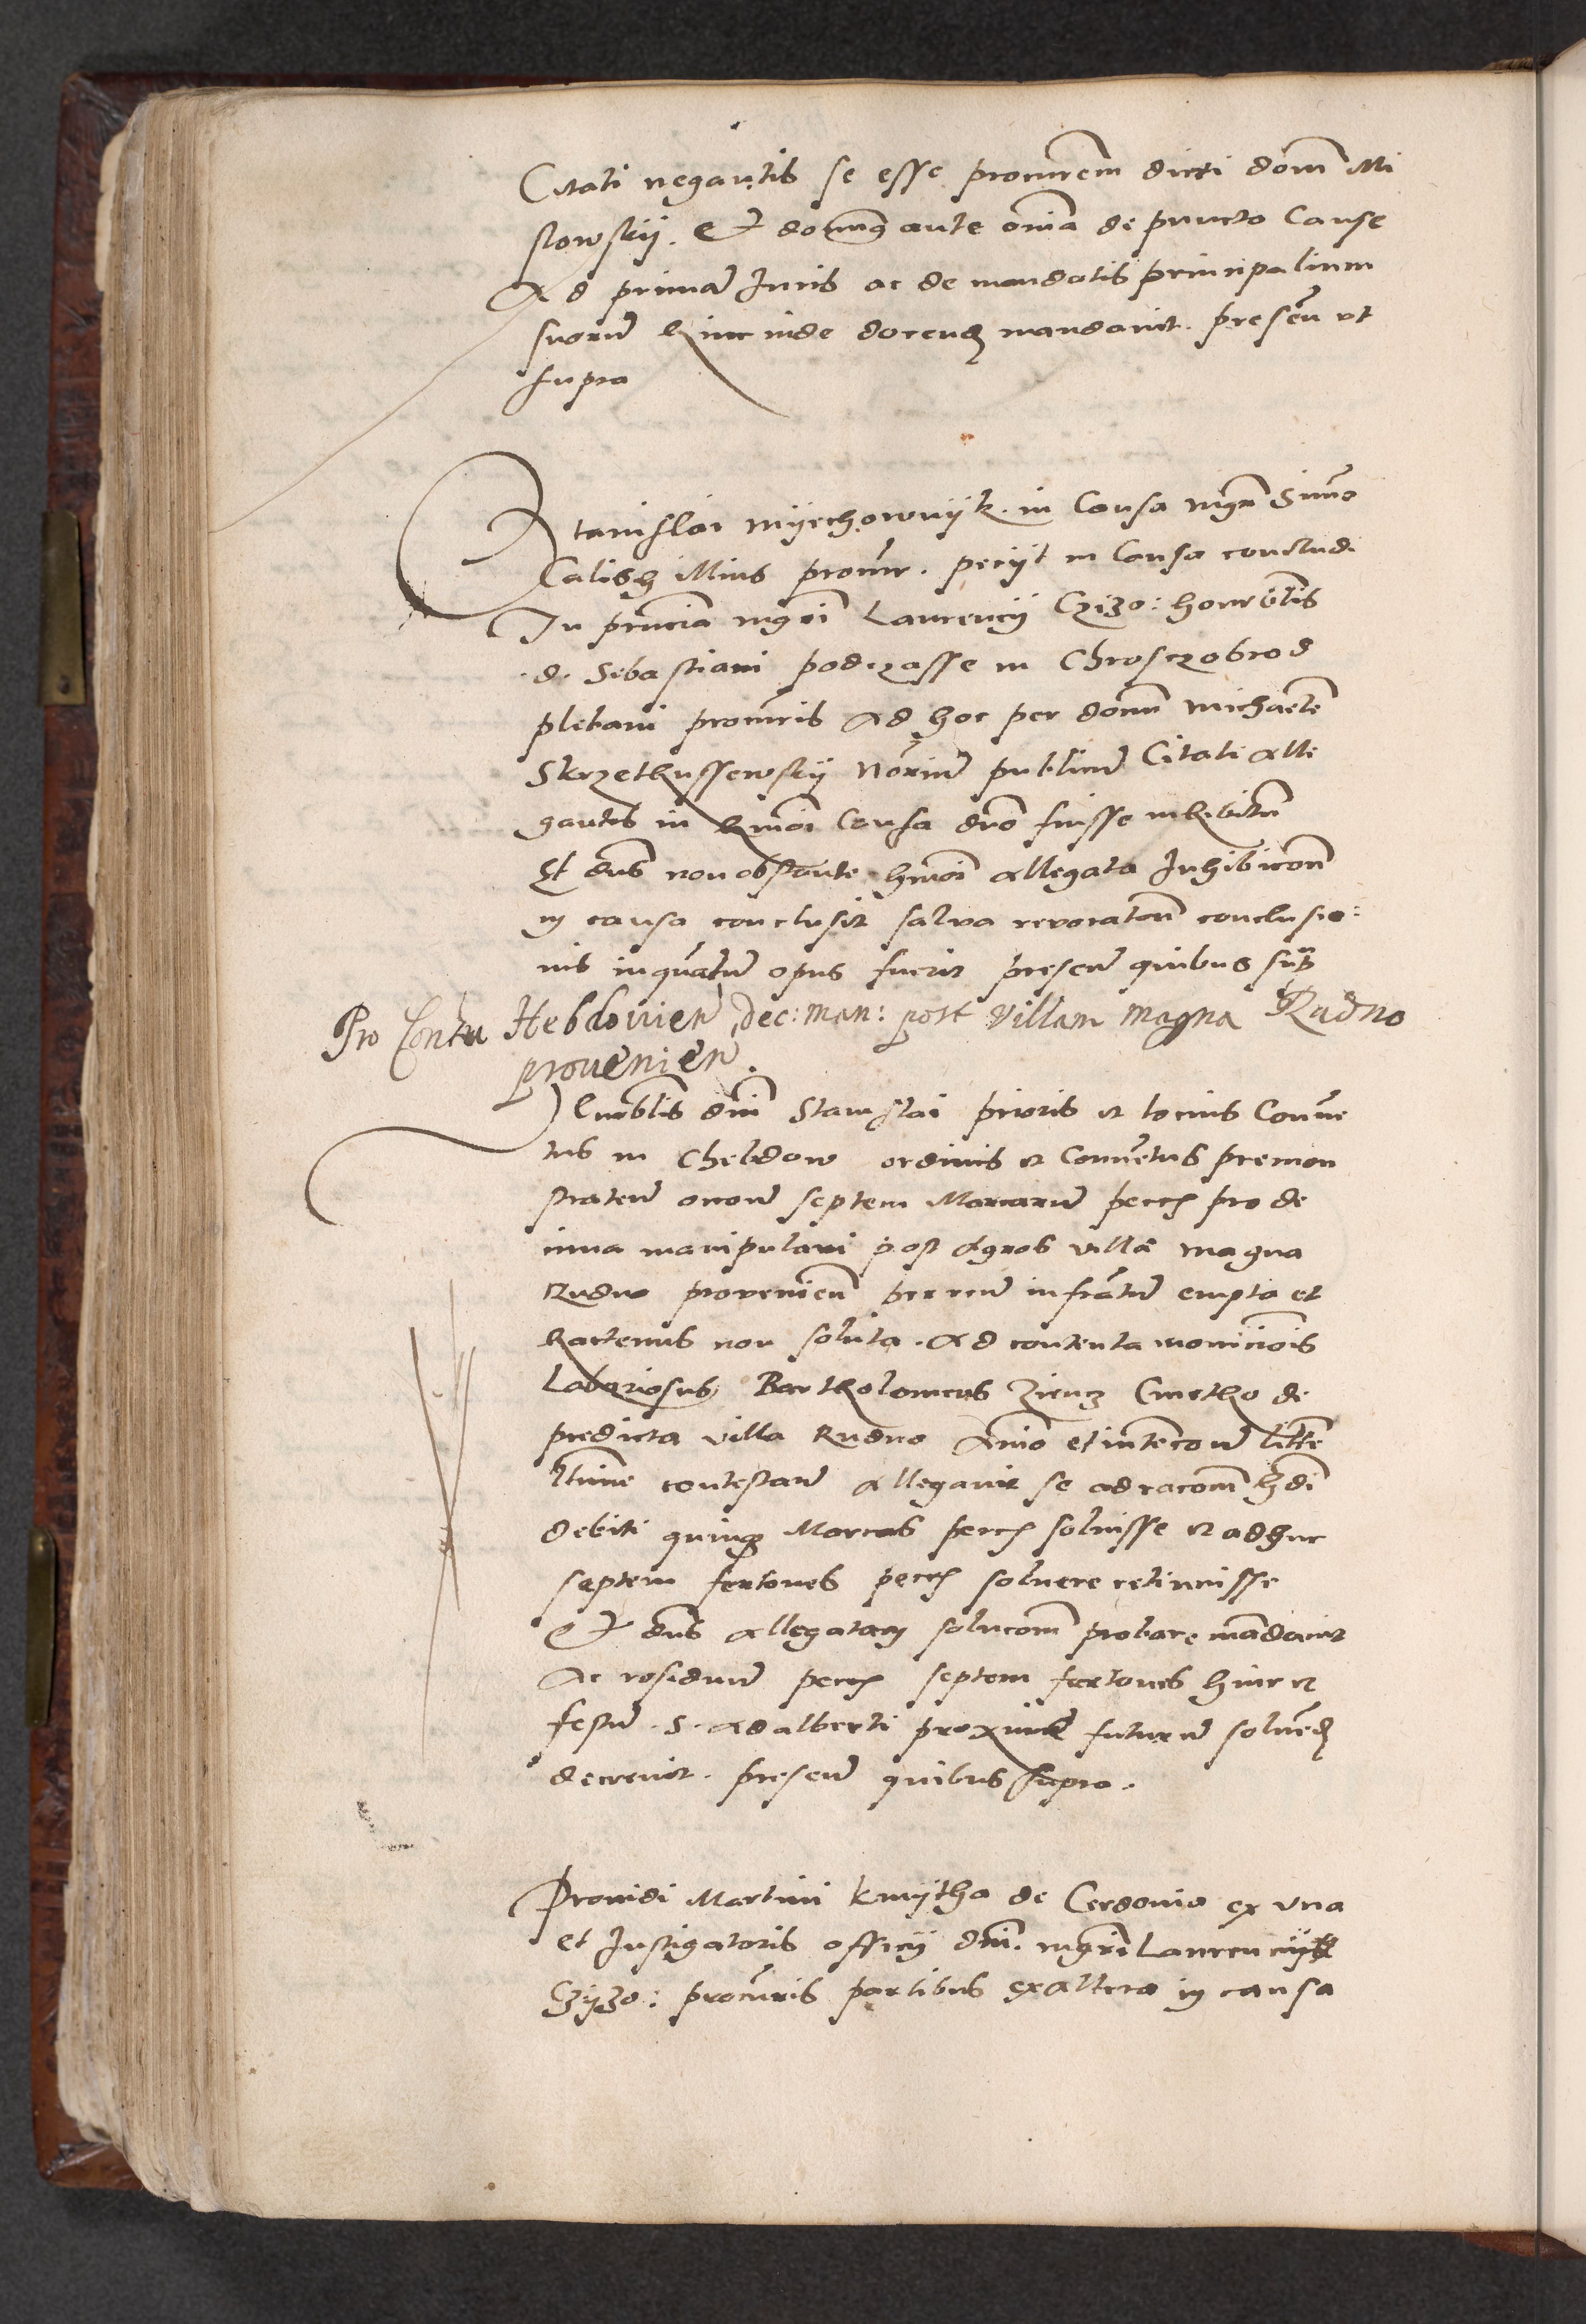 Citati negantis se esse procurem dicti domi Mi
slowskij. Et domnus ante omnia de puncto Cause
Ad primam Juris ac de mandatis principalium
suorum hincinde docendum mandavit. presen ut
supra
Stanislai myechownyk. in Causa mgri Simo
Calish Illius procur. peciit in Causa concludi
In pnciam mgri Laurencij Czizo: honorblis
d. Sebastiani podczasse in Chrosczobrod
plebani procuris ad hoc per domnm michaelem
Skrzethussewskij Norium publicum Citati alle
gantis in hmoi Causa dno fuisse inhibitum
Et dns non obstante hmoi allegata Inhibicone
in causa conclusit salva revocatione conclusio:
nis inquantum opus fuerit presen quibus supra
Pro Contu Hebdovien dec: man: post villam magna Rudno
provenien.
Venerblis dni Stanislai prioris et tocius Conven
tus in Chebdow ordinis et Conventus premon
straten septem Marcarum pecc pro de
cima manipulari post agros ville magna
Rudno provenien per reum infratum empta et
hactenus non soluta. Ad contenta monicionis
Laboriosus Bartholomeus Zienz Cmetho de
predicta villa Rudno Animo et intencone litem
contestan Allegavit se ad racom hdi
debiti quinque Marcas pecc solvisse et adhuc
septem fertones pecc solvere retinuisse
Et dns allegatam solucom probare mandavit
Ac residuum pecc septem fertones hinc et
festum .S. Adalberti proxime futurum solvendum
decrevit. presen quibus supra.
Providi Martini kmytha de Cerdonia ex una
et Instigatoris officij dni. mgri Laurencij
Czyzo: procuris partibus ex altera in causa